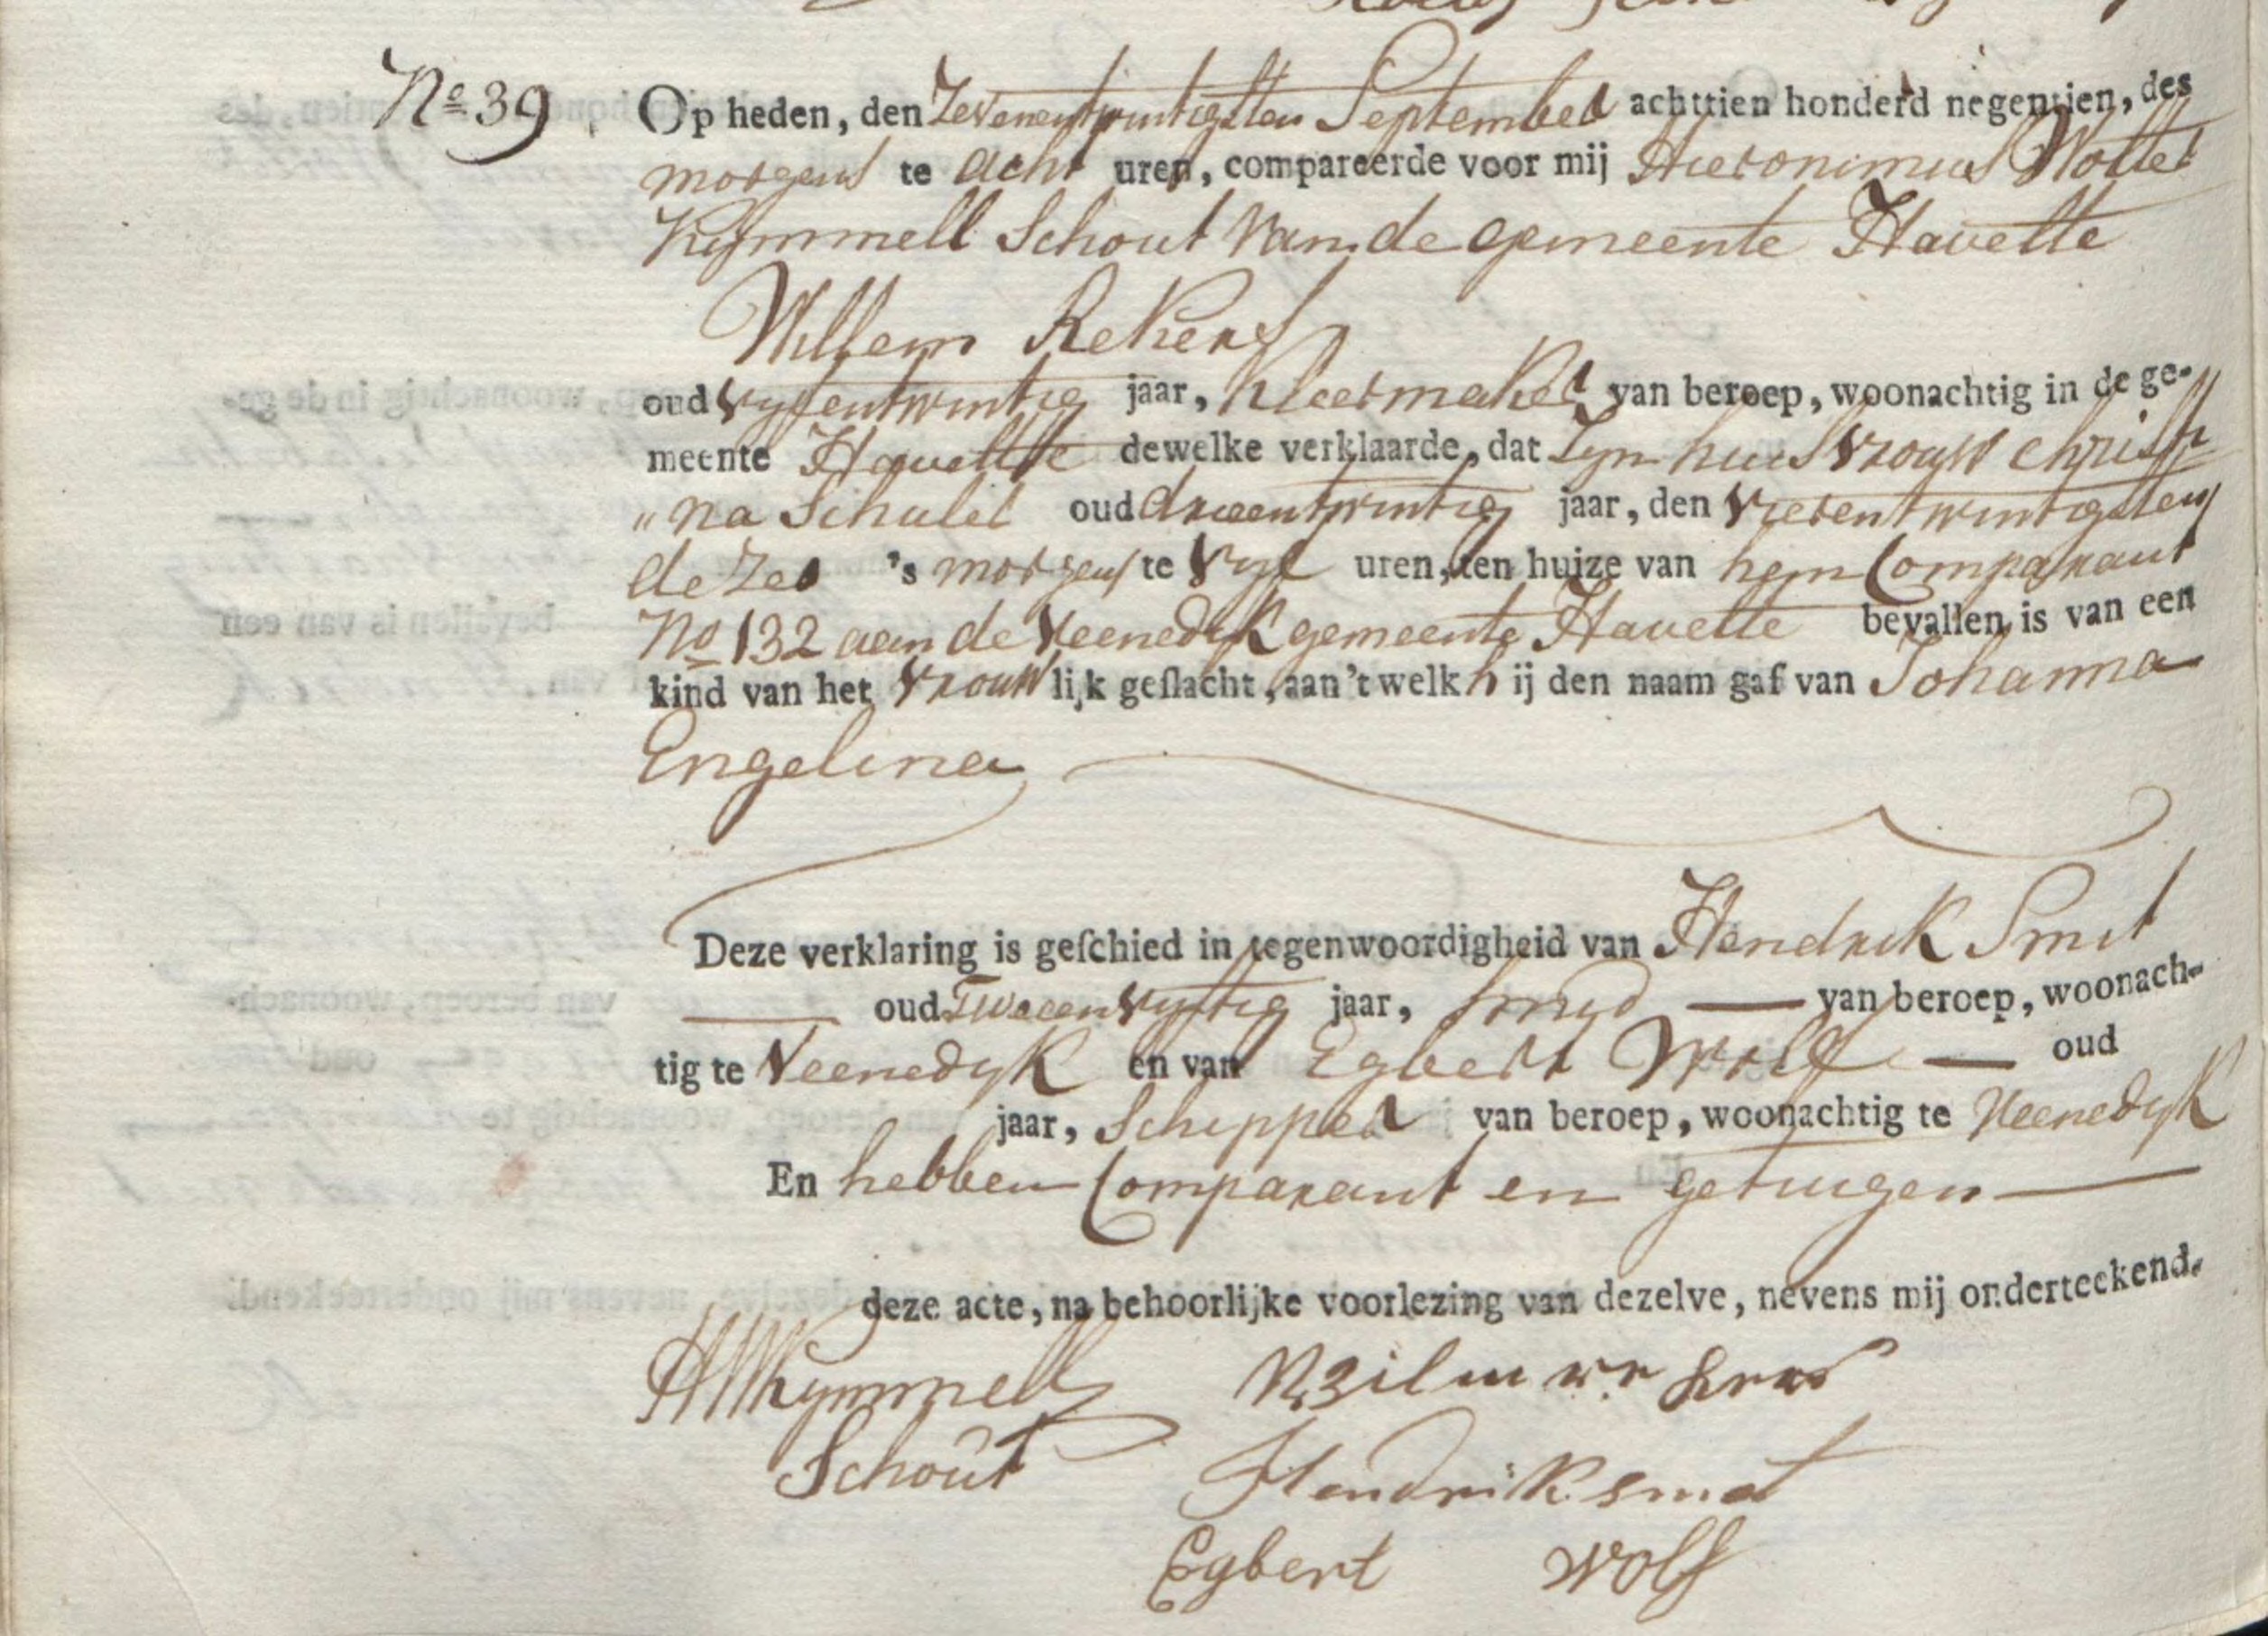 No 39 Op heden, den Zevenentwintigsten September achttien honderd negentien, des
morgens te acht uren, compareerde voor mij Hieronimus Wolter
Kymmell Schout van de gemeente Havelte
Willem Rekers
oud vyfentwintig jaar, Kleermaker van beroep, woonachtig in de ge-
meente Havelte dewelke verklaarde, dat Zyn huisvrouw Christi
„na Schulel oud drieentwintig jaar, den vierentwintigsten
dezes 's morgens te vyf uren, ten huize van hem Comparant
No 132 aan de Veenedyk gemeente Havelte bevallen is van een
kind van het vrouwlijk geslacht, aan 't welk hij den naam gaf van Johanna
Engelina
Deze verklaring is geschied in tegenwoordigheid van Hendrik Smit
oud Tweeenvyftig jaar, smid van beroep, woonach-
tig te Veenedyk en van Egbert Wolf oud
jaar, Schipper van beroep, woonachtig te Veenedyk
En hebben Comparant en getuigen
deze acte, na behoorlijke voorlezing van dezelve, nevens mij onderteekend.
HWKymmell
Schout
Hendrik smet
Egbert Wolf